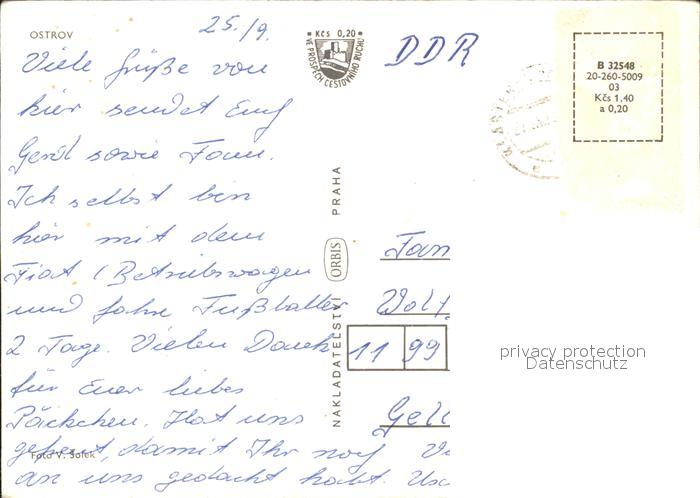 OSTROV
25./9.
Kčs 0,20
VE PROSPĚCH CESTOVNÍHO RUCHU
DDR
B 32548
20-260-5009
03
Kčs 1,40
a 0,20
Viele Grüße von
hier sendet Euch
Gerd sowie Fam.
Ich selbst bin
hier mit dem
Fiat (Betriebswagen
und fahre
2 Tage. Vielen Dank
für Euer liebes
Päckchen. Hat uns
gefreut, damit Ihr noch
an uns gedacht habt.
NAKLADATELSTVÍ ORBIS PRAHA
Fam
Wolf
11 99
Foto V. Šolek
privacy protection
Datenschutz